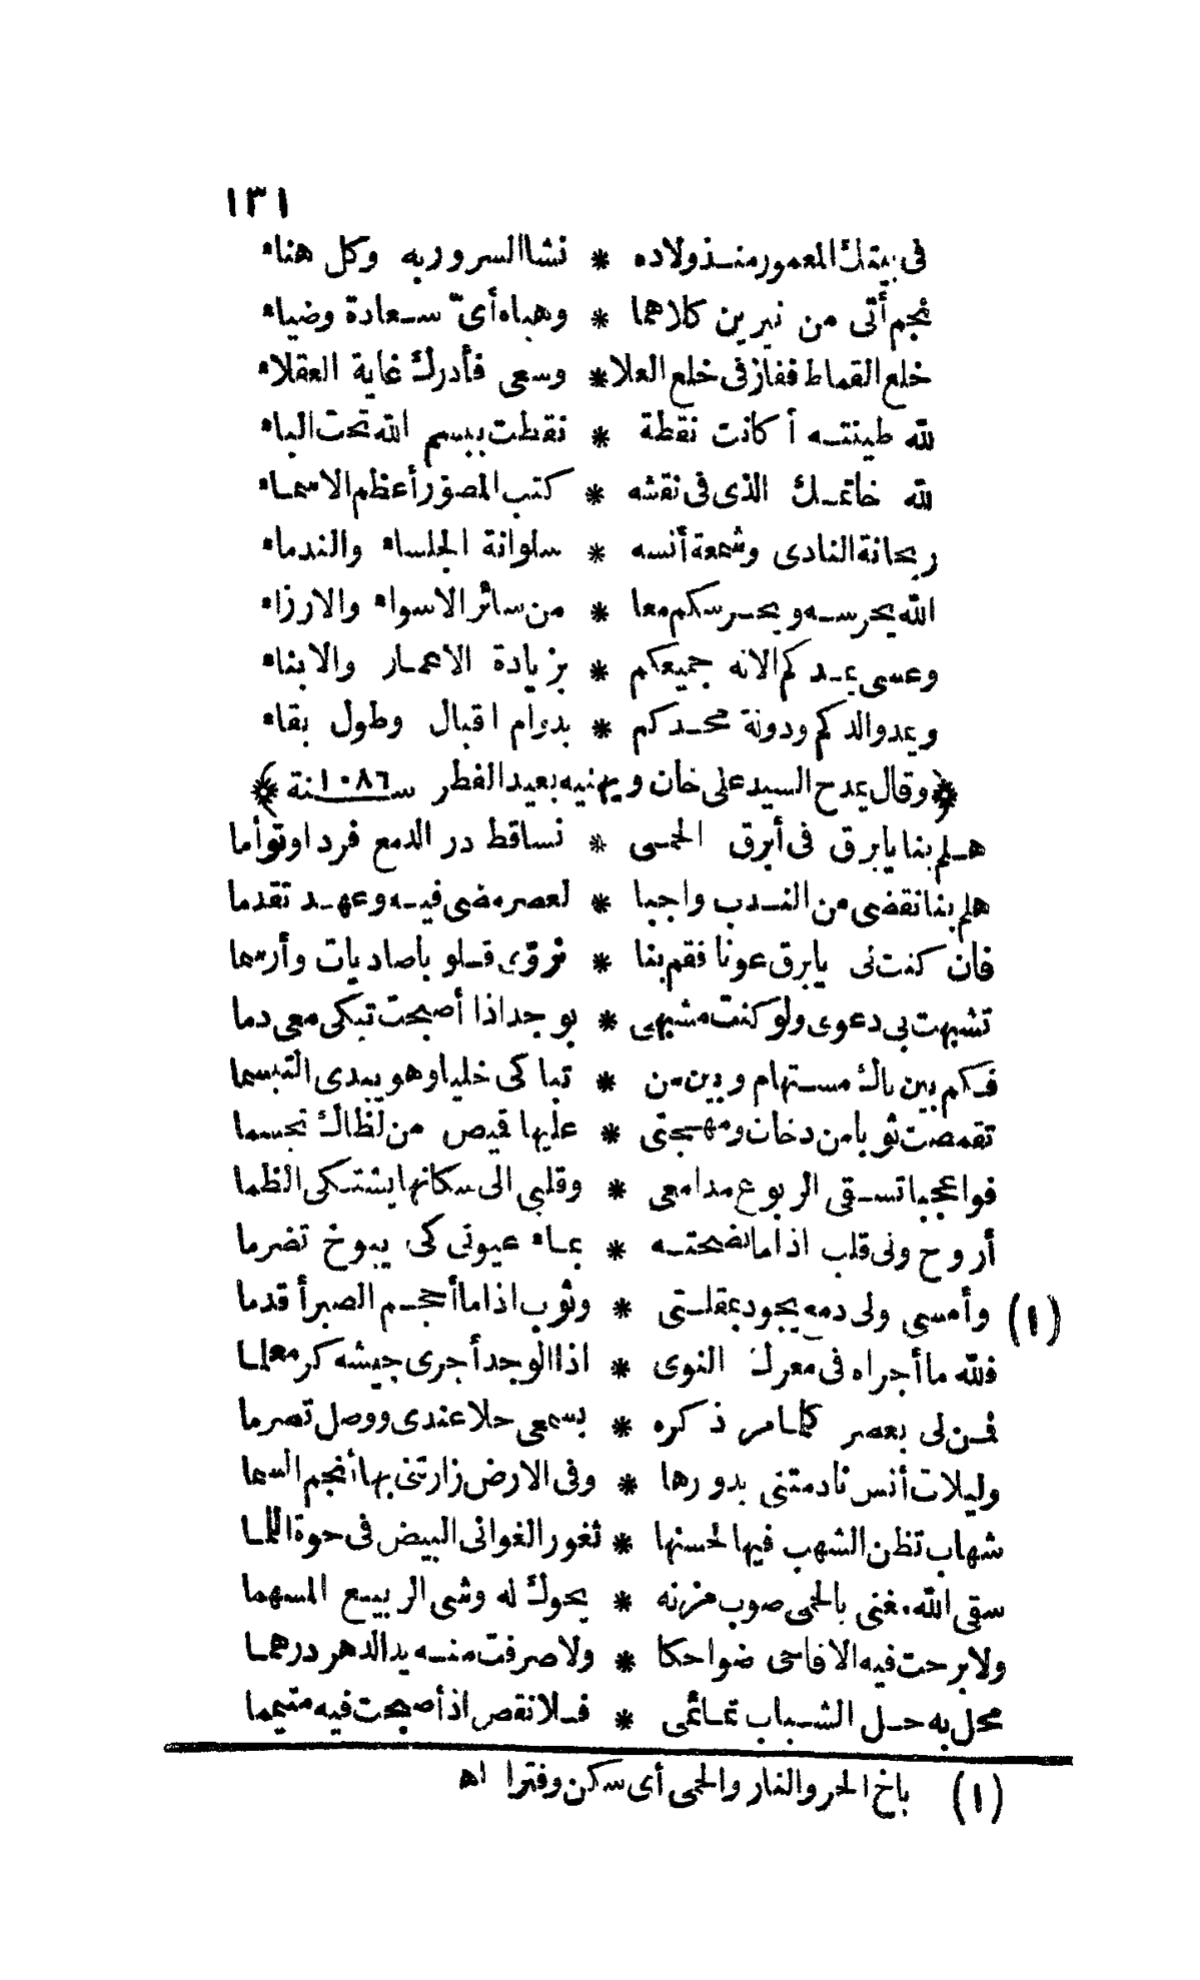 ١٣١
فى بيتك المعمور منذ ولاده * نشا السرور به وكل هناء
نجم أتى من نيرين كلاهما * وهباه أىّ سعادة وضياء
خلع القماط ففاز فى خلع العلا * وسعى فأدرك غاية العقلاء
لله طينته أكانت نقطة * نقطت ببسم الله تحت الباء
لله خاتمك الذى فى نقشه * كتب المصوّر أعظم الاسماء
ريحانة النادى وشمعة أنسه * سلوانة الجلساء والندماء
الله يحرسه ويحرسكم معا * من سائر الاسواء والارزاء
وعسى يمدكم الاله جميعكم * بزيادة الاعمار والابناء
ويمد والدكم ودولة مجدكم * بدوام اقبال وطول بقاء
﴿وقال يمدح السيد على خان ويهنيه بعيد الفطر سنة ١٠٨٦﴾
هلم بنا يابرق فى أبرق الحمى * نساقط در الدمع فردا وتوأما
هلم بنا نقضى من الندب واجبا * لعصر مضى فيه وعهد تقدما
فان كنت لى يابرق عونا فقم بنا * نروّى قلوبا صاديات وأرسما
تشبهت بى دعوى ولو كنت مشبهى * بوجد اذا أصبحت تبكى معى دما
فكم بين باك مستهام وبين من * تباكى خليا وهو يبدى التبسما
تقمصت ثوبا من دخان ومهجتى * عليها قميص من لظاك تجسما
فواعجبا تسقى الربوع مدامعى * وقلبى الى سكانها يشتكى الظما
أروح ولى قلب اذا ما نضحته * بماء عيونى كى يبوخ تضرما
(١) وأمسى ولى دمع يجود بمقلتى * وثوب اذا ما أحجم الصبر أقدما
فلله ما أجراه فى معرك النوى * اذا الوجد أجرى جيشه كر معلما
فمن لى بعصر كلما مر ذكره * بسمعى حلا عندى ووصل تصرما
وليلات أنس نادمتنى بدورها * وفى الارض زارتنى بها أنجم السما
شهاب تظن الشهب فيها لحسنها * ثغور الغوانى البيض فى حوة اللما
سقى الله مغنى بالحمى صوب مزنه * يحوك له وشى الربيع المسهما
ولا برحت فيه الاقاحى ضواحكا * ولا صرفت منه يد الدهر درهما
محل به حل الشباب تمائمى * فلا نقص اذ أصبحت فيه متيما
(١) باخ الحر والنار والحمى أى سكن وفترا اه